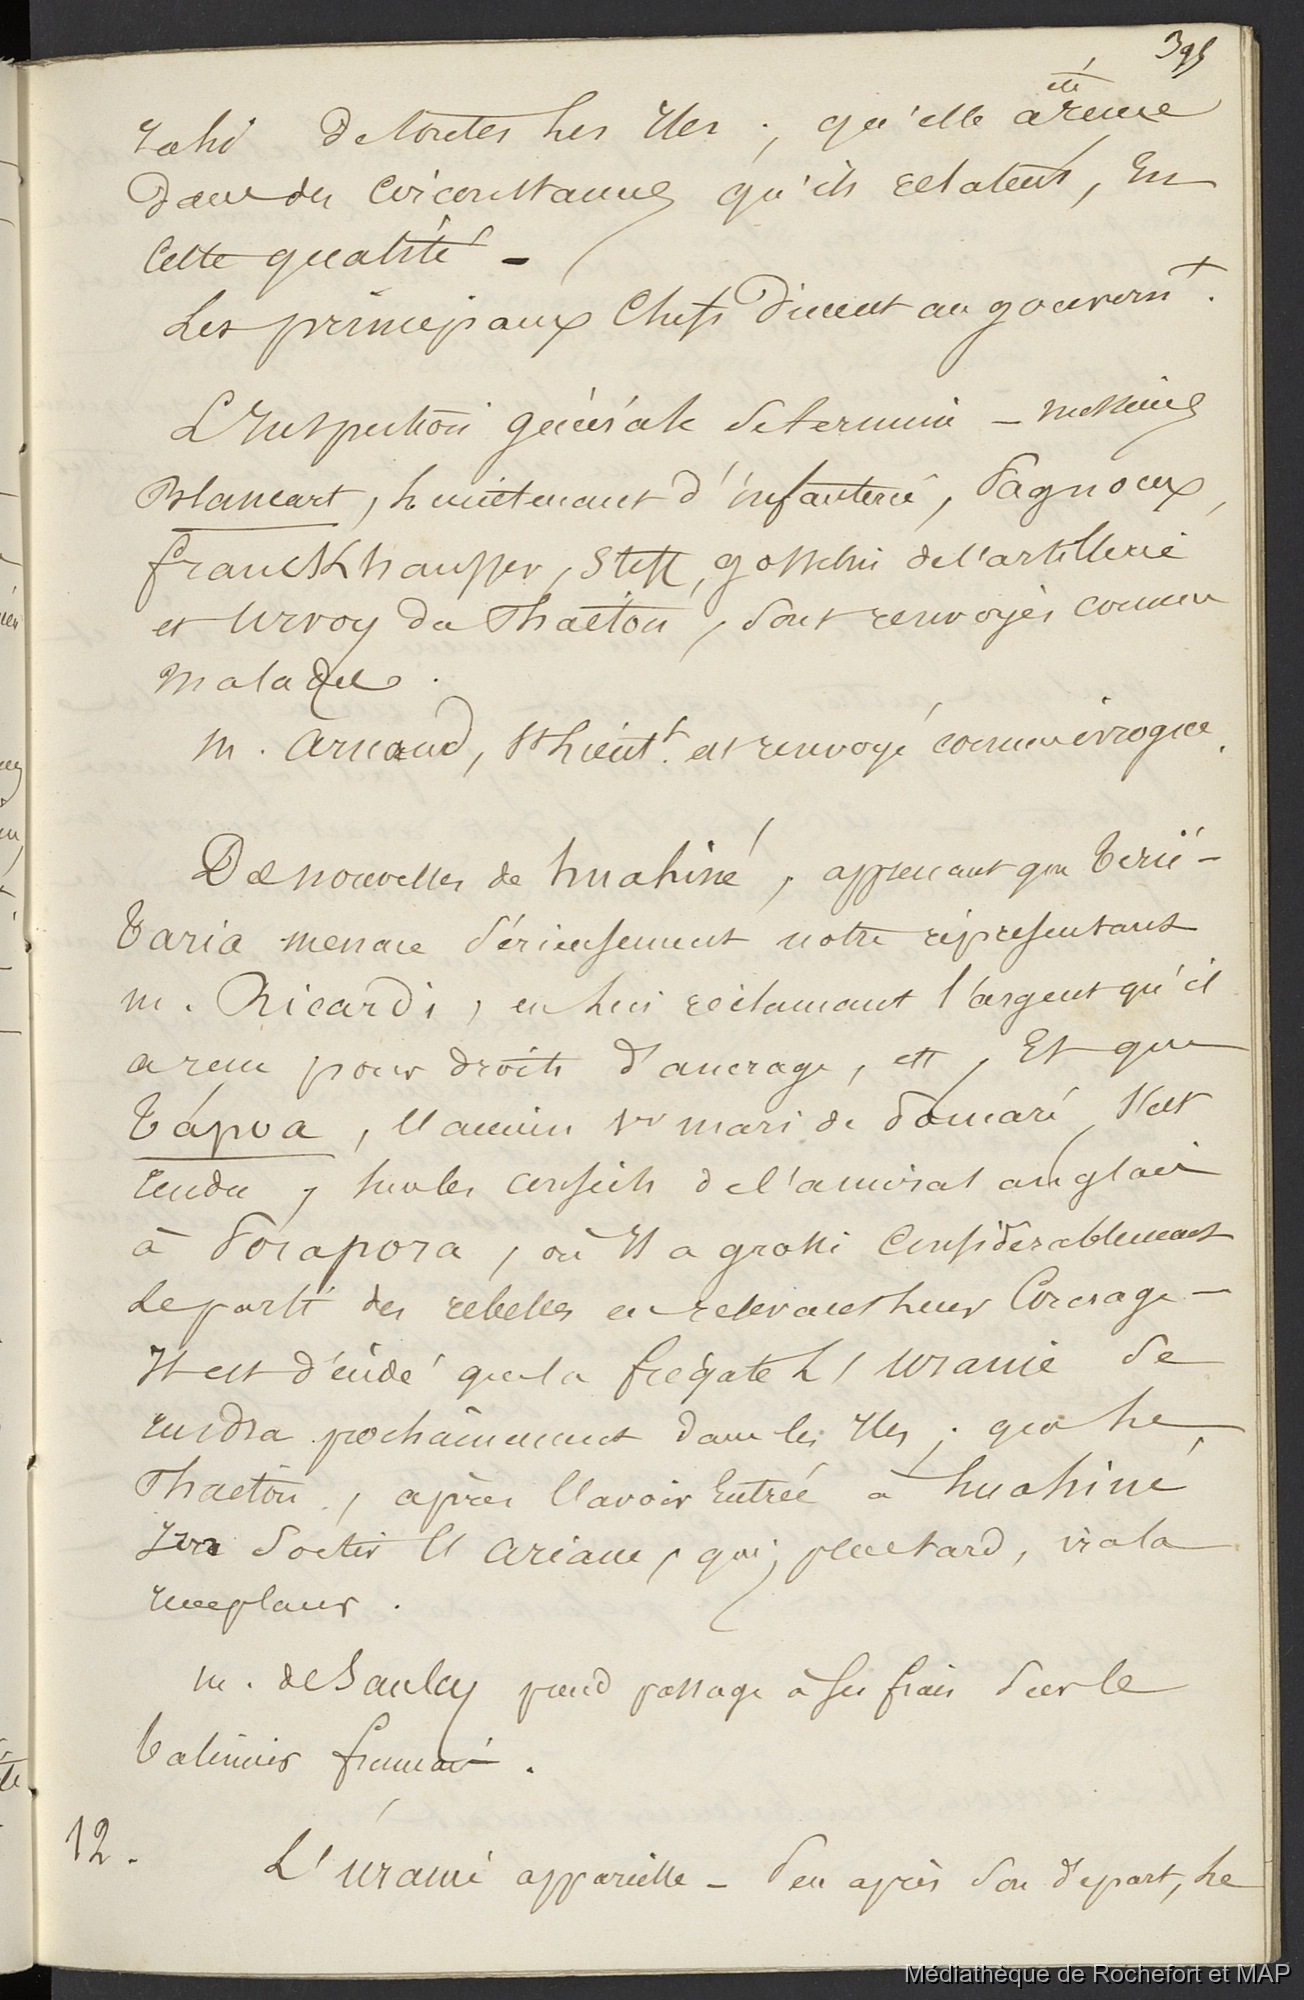 395
Rahi de toutes les Iles ; qu'elle a été reçue
dans des circonstances qu'ils relatent, En
cette qualité -
Les principaux Chefs dinent au gouvernt.
L'Inspection générale determinée - messieurs
Blancart, lieuitenant d'infanterie, Pagnoux,
franckhauffer, Steff, gosselin de l'artillerie
et Urvoy du Phaëton, sont renvoyés comme
malades.
m. Arnaud, Ss lieutt. est renvoyé comme ivrogne.
Des nouvelles de huahiné, apprenant que Térii-
Taria menace sérieusement notre représentant
m. Ricardi, en lui réclamant l'argent qu'il
a reçu pour droits d'ancrage, etc, Et que
Tápoa, l'ancien 1er mari de Pomaré s'est
rendu, sur les conseils de l'amiral anglais
à Borapora, où Il a grossi considérablement
le parti des rebelles en relevant leur Courage -
Il est décidé que la frégate L'Uranie se
rendra prochainement dans les Iles ; que le
Phaëton, après l'avoir Entrée à huahiné
fera sortir l'Ariane, qui, plus tard, ira la
remplacer.
m. de Saulcy prend passage à ses frais sur le
batiment français.
12.
L'Uranie appareille - Peu après son départ, le
Médiathèque de Rochefort et MAP